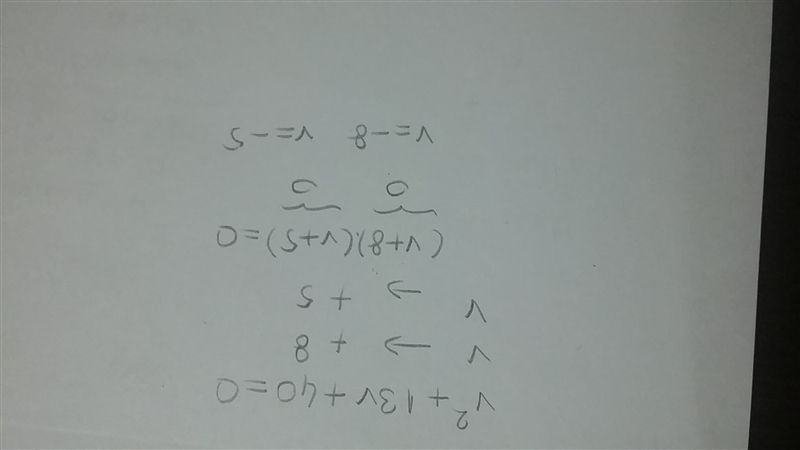 v² + 13v + 40 = 0
v → + 8
v → + 5
(v+8)·(v+5) = 0
0 0
v = -8 v = -5